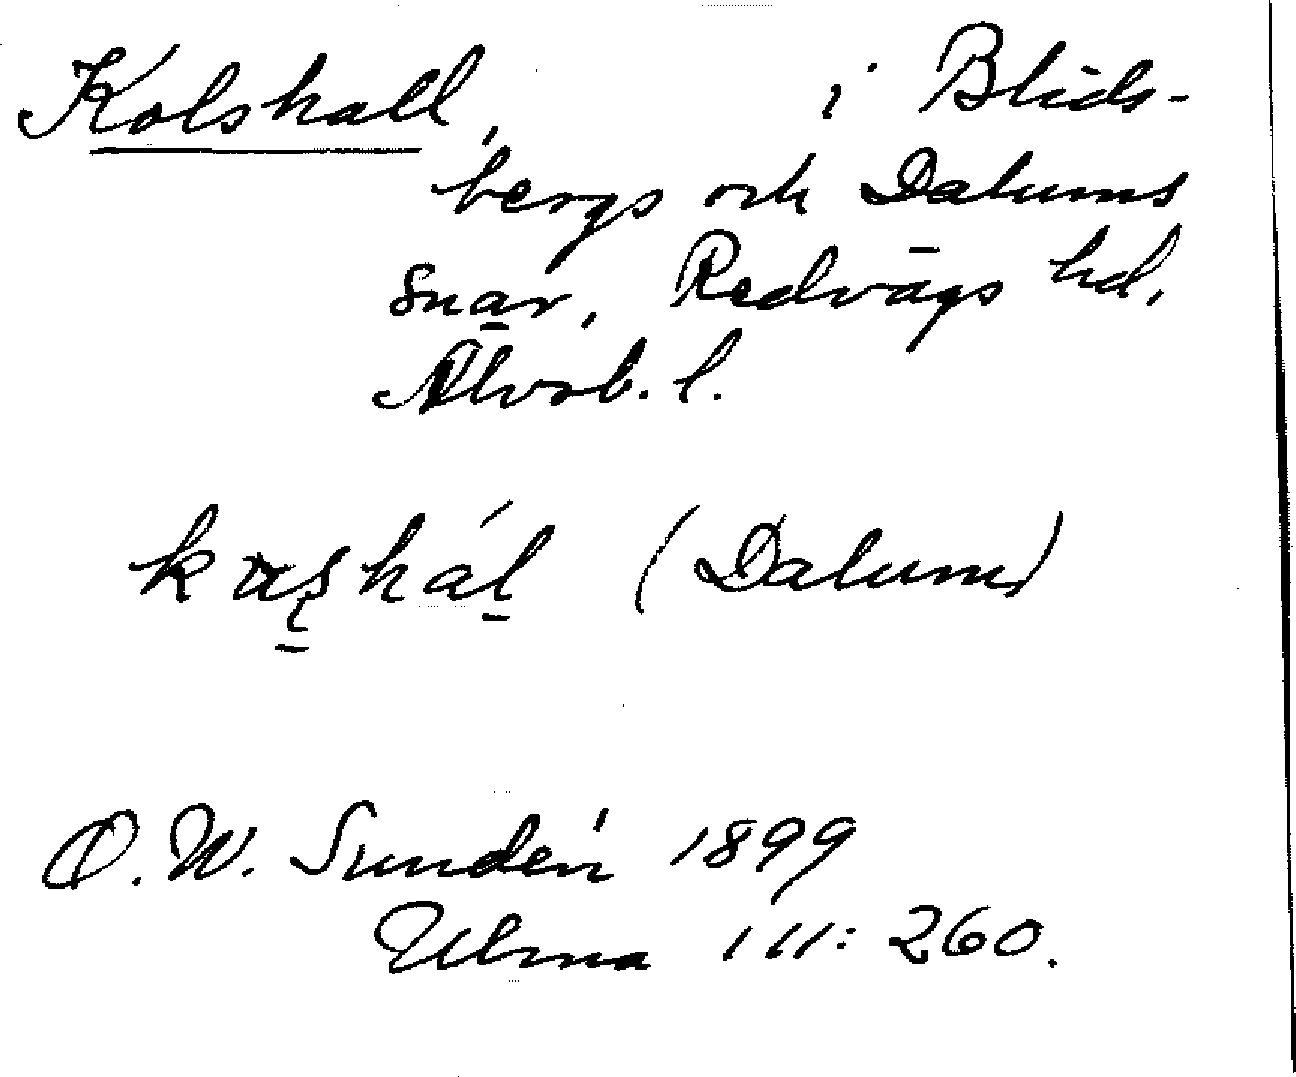 Kolshall, i Blids-
bergs och Dalums
snar, Redvägs hd,
Älvsb. l.
(Dalum)
D. W. Sundén 1899
Ulma 111: 260.